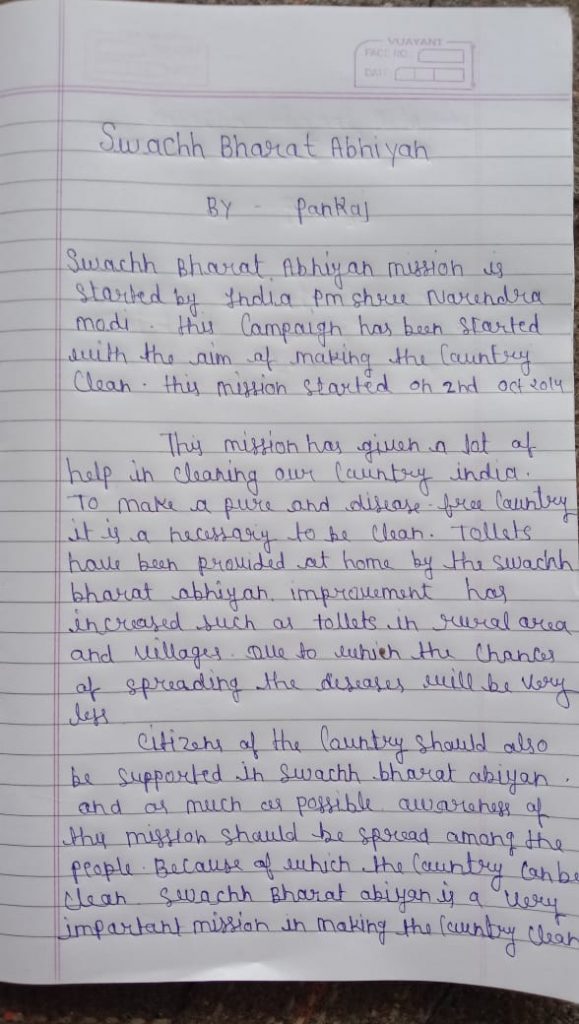 VIJAYANT
PAGE NO.
DATE
Swachh Bharat Abhiyan
BY - Pankaj
Swachh Bharat Abhiyan mission is
started by India Pm shree Narendra
modi. this Campaign has been started
with the aim of making the Country
Clean. this mission started on 2nd oct 2014
This mission has given a lot of
help in cleaning our Country india.
To make a pure and disease free Country
it is a necessary to be clean. Tollets
have been provided at home by the swachh
bharat abhiyan. improvement has
increased such as tollets in rural area
and villages. Due to which the Chances
of spreading the deseases will be very
less
Citizens of the Country should also
be supported in swachh bharat abiyan.
and as much as possible awareness of
this mission should be spread among the
people. Because of which the Country can be
clean swachh Bharat abiyan is a very
important mission in making the Country clean